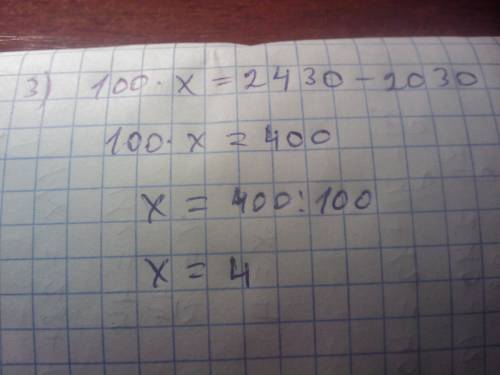 3) 100 · x = 2430 - 2030
100 · x = 400
x = 400 : 100
x = 4